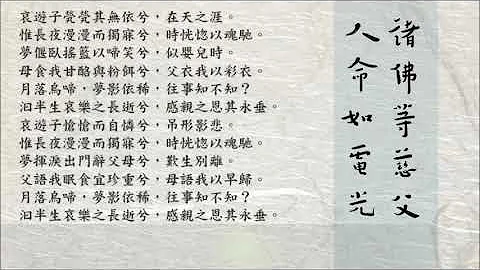 哀遊子煢煢其無依兮，在天之涯。
惟長夜漫漫而獨寐兮，時恍惚以魂馳。
夢偃臥搖籃以啼笑兮，似嬰兒時。
母食我甘酪與粉餌兮，父衣我以彩衣。
月落烏啼，夢影依稀，往事知不知？
汨半生哀樂之長逝兮，感親之恩其永垂。
哀遊子愴愴而自憐兮，弔形影悲。
惟長夜漫漫而獨寐兮，時恍惚以魂馳。
夢揮淚出門辭父母兮，歎生別離。
父語我眠食宜珍重兮，母語我以早歸。
月落烏啼，夢影依稀，往事知不知？
汨半生哀樂之長逝兮，感親之恩其永垂。
諸佛等慈父
人命如電光